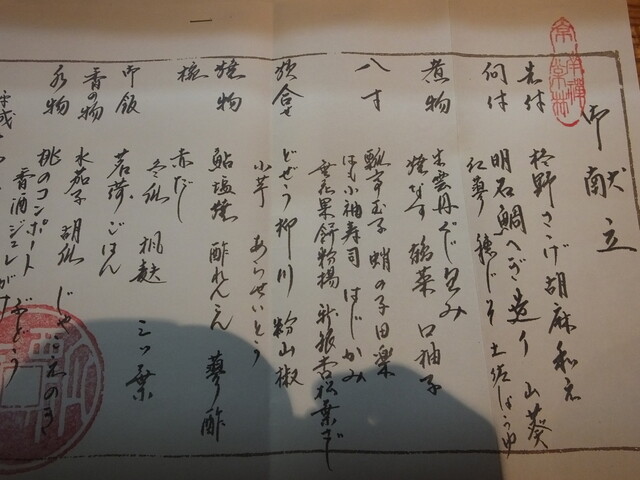 御献立
先付
柊野さゝげ胡麻和え
向付
明石鯛へぎ造り 山葵
紅蓼 穂じそ 土佐しょうゆ
煮物
生雲丹くず包み
焼なす 鶴菜 口柚子
八寸
瓢亭玉子 蛸の子田楽
はも小袖寿司 はじかみ
無花果餅粉揚 新銀杏松葉ざし
焚合せ
どぜう柳川 粉山椒
小芋 あらせいとう
焼物
鮎塩焼 酢れんこん 蓼酢
椀
赤だし
冬瓜 楓麩 三ッ葉
御飯
茗荷ごはん
香の物
水茄子 胡瓜 じゃこ 木のめ
水物
桃のコンポート ぶどう
香酒ジュレがけ
平成